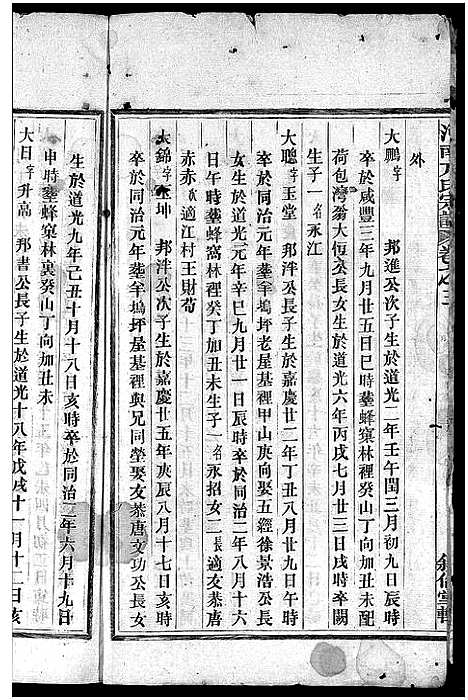 外
大鵬字 邦進公次子生於道光二年壬午閏三月初九日辰時
卒於咸豐三年九月廿五日巳時塟蜂窠林裡癸山丁向加丑未配
荷包灣翁大恆公長女生於道光六年丙戌七月廿三日戌時卒闕
生子一名永江
大聰字玉堂 邦泮公長子生於嘉慶廿二年丁丑八月廿九日午時
卒於同治元年塟牟塢坪老屋基裡甲山庚向娶五經徐景浩公長
女生於道光元年辛巳九月廿一日辰時卒於同治二年八月十六
日午時塟蜂窩林裡癸丁加丑未生子一名永招女二長適友慕唐
赤赤適江村王財苟
大錦字玉坤 邦泮公次子生於嘉慶廿五年庚辰八月十七日亥時
卒於同治元年塟牟塢坪屋基裡與兄同塋娶友慕唐文功公長女
生於道光九年己丑十月十八日亥時卒於同治二年六月十九日
申時塟蜂窠林裏癸山丁向加丑未
大日字升高 邦書公長子生於道光十八年戊戌十一月十二日亥